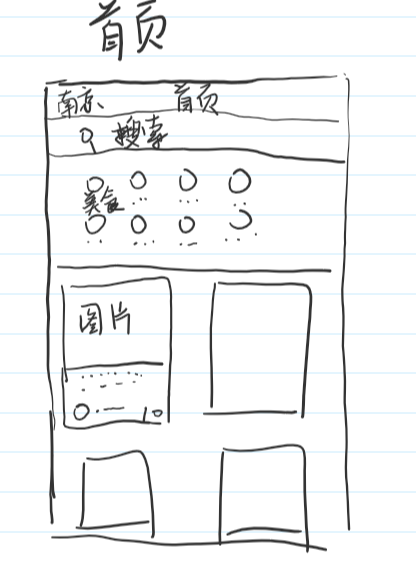 首页
南京 首页
搜索
美食
图片
10